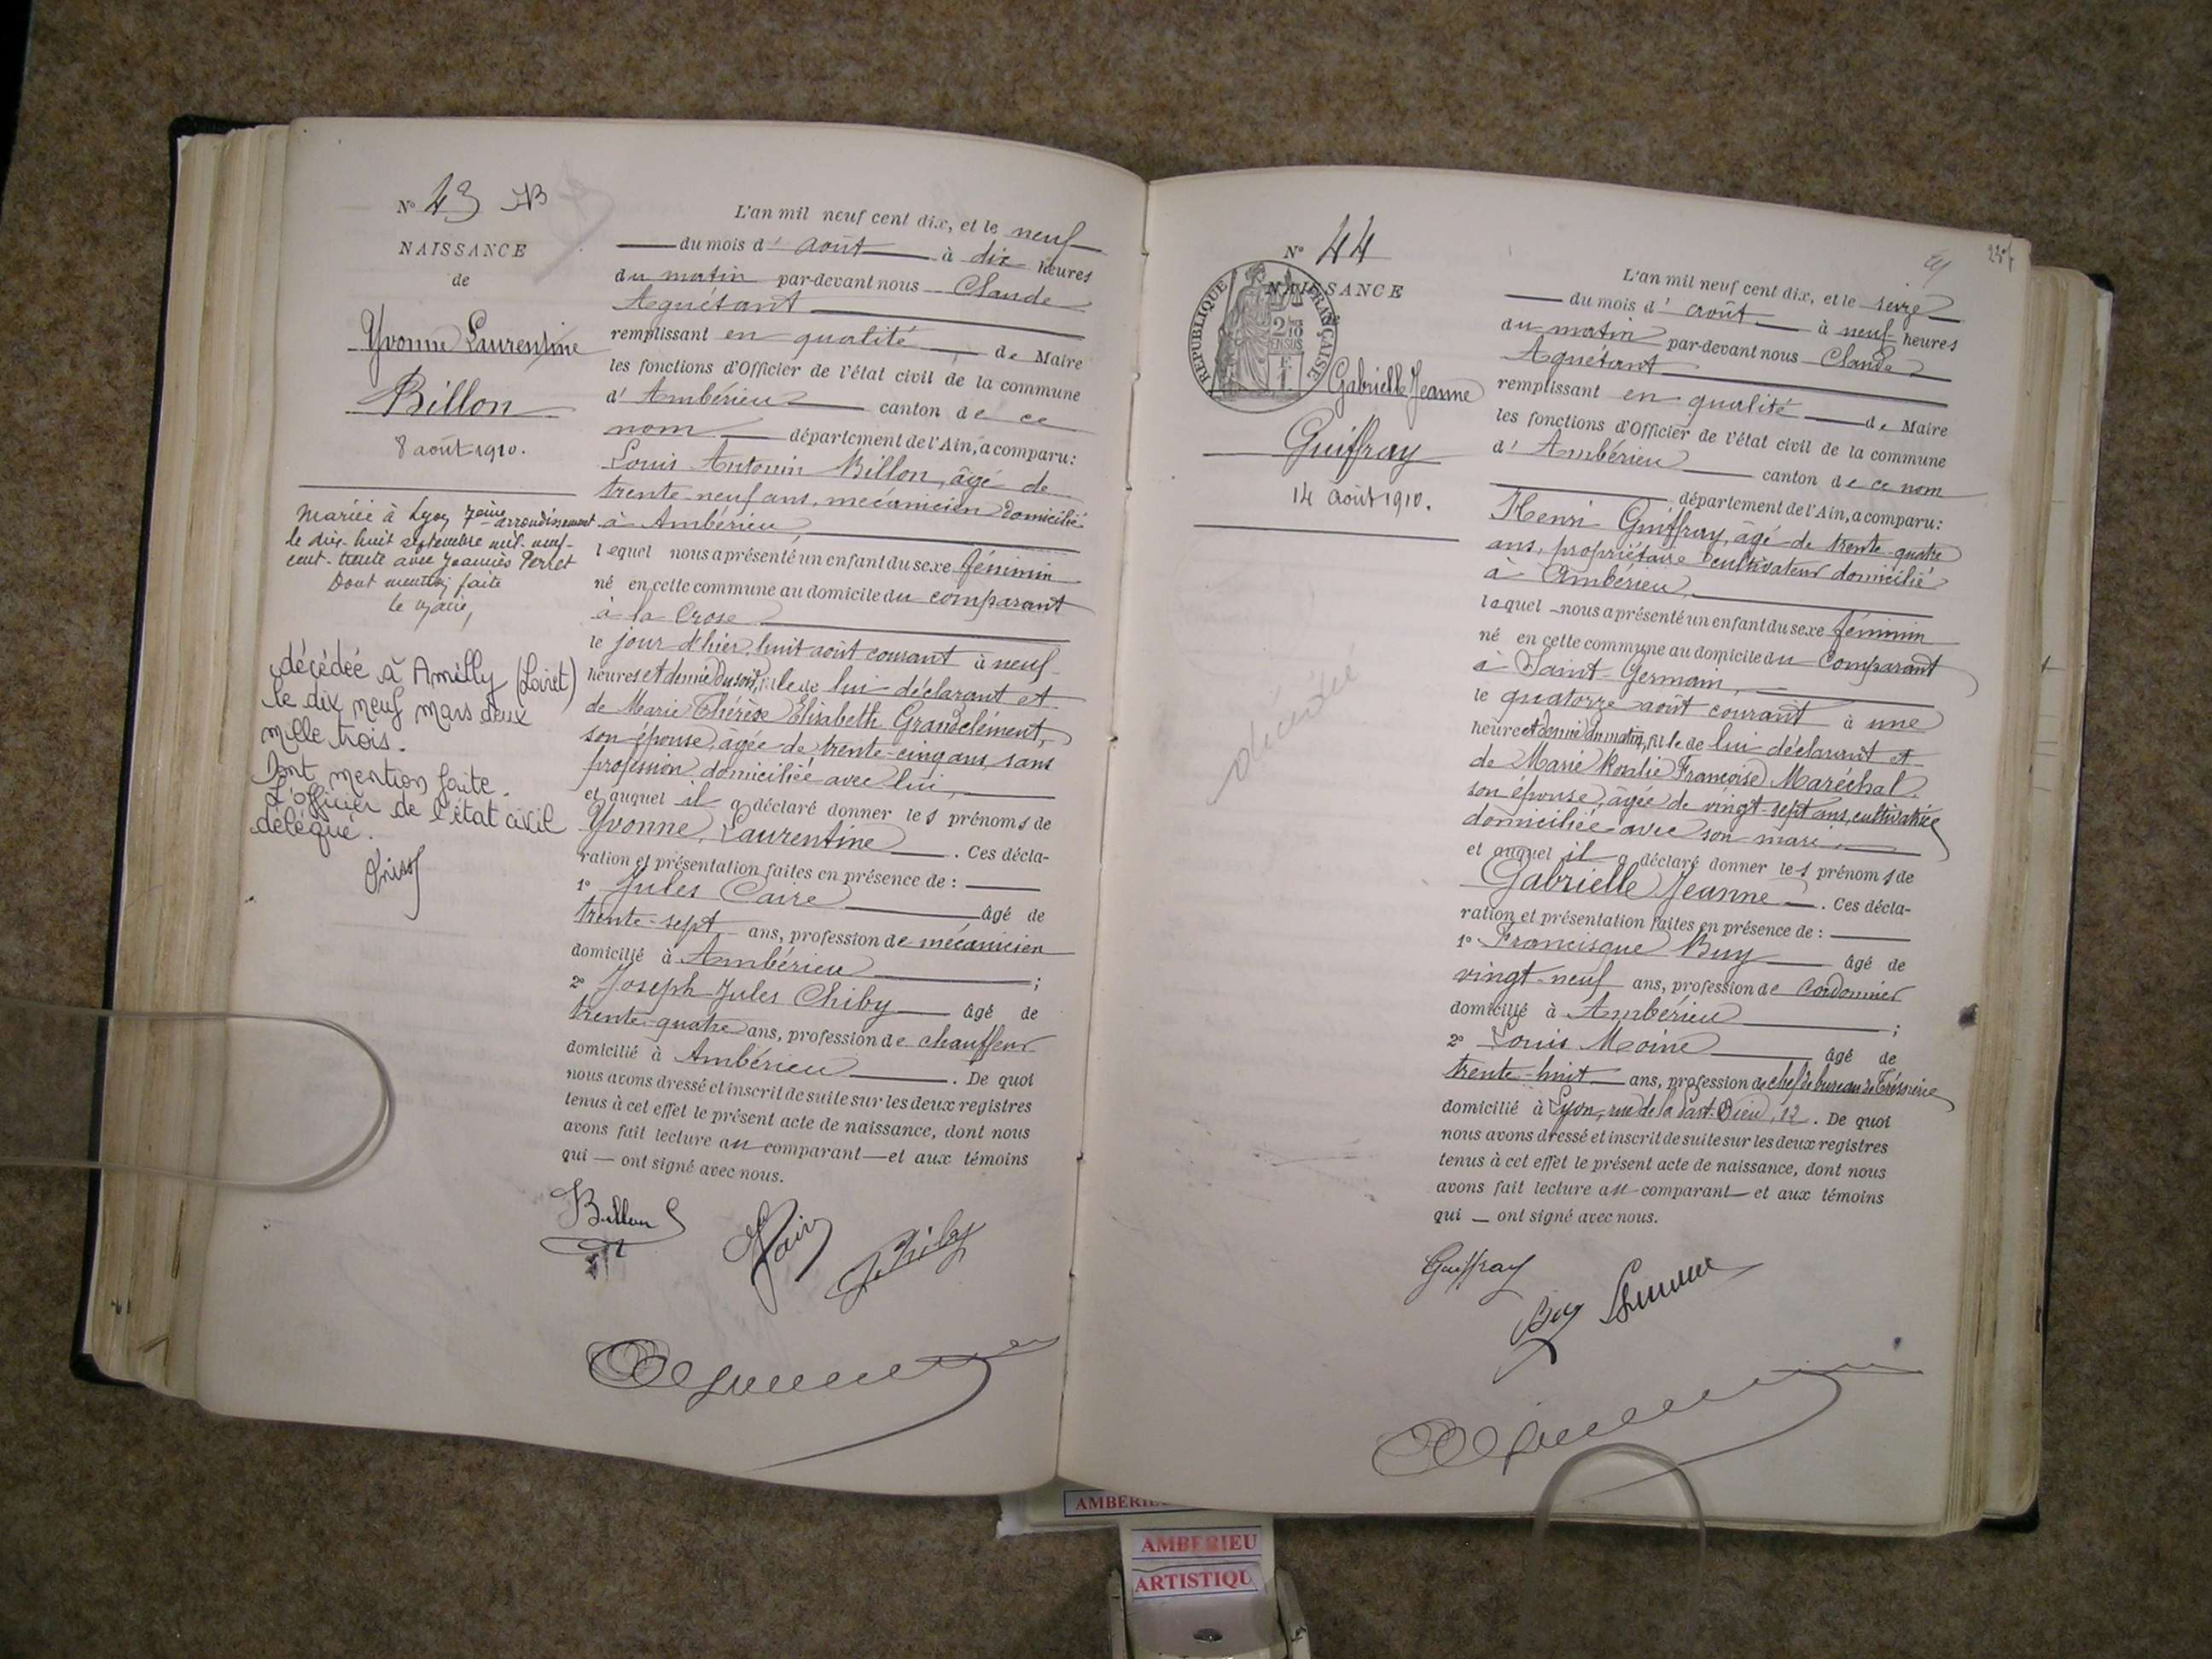 N° 43
NAISSANCE
de
Yvonne Laurentine
Billon
8 août 1910.
Mariée à Lyon 7eme arrondissement
le dix-huit septembre mil-neuf-
cent-trente avec Joannès Perret
Dont mention faite
Le Maire,
décédée à Amilly (Loiret)
le dix neuf mars deux
mille trois.
Dont mention faite.
L'officier de l'état civil
délégué.
L'an mil neuf cent dix, et le neuf
du mois d' août à dix heures
du matin par-devant nous Claude
Aguétant
remplissant en qualité de Maire
les fonctions d'Officier de l'état civil de la commune
d' Ambérieu canton de ce
nom département de l'Ain, a comparu:
Louis Antonin Billon, âgé de
trente-neuf ans, mécanicien domicilié
à Ambérieu,
lequel nous a présenté un enfant du sexe féminin
né en cette commune au domicile du comparant
à la Crose
le jour d'hier, huit août courant à neuf
heures et demie du soir, fille de lui déclarant et
de Marie Thérèse Elisabeth Grandclément,
son épouse, âgée de trente-cinq ans, sans
profession domiciliée avec lui,
et auquel il a déclaré donner les prénoms de
Yvonne, Laurentine . Ces décla-
ration et présentation faites en présence de :
1° Jules Caire âgé de
trente-sept ans, profession de mécanicien
domicilié à Ambérieu ;
2° Joseph Jules Chiby âgé de
trente-quatre ans, profession de chauffeur
domicilié à Ambérieu . De quoi
nous avons dressé et inscrit de suite sur les deux registres
tenus à cet effet le présent acte de naissance, dont nous
avons fait lecture au comparant et aux témoins
qui ont signé avec nous.
Billon
Chiby
N° 44
NAISSANCE
RÉPUBLIQUE FRANÇAISE
2/10 EN SUS
Gabrielle Jeanne
Guiffray
14 août 1910.
décédée
L'an mil neuf cent dix, et le seize
du mois d' août à neuf heures
du matin par-devant nous Claude
Aguétant
remplissant en qualité de Maire
les fonctions d'Officier de l'état civil de la commune
d' Ambérieu canton de ce nom
département de l'Ain, a comparu:
Henri Guiffray, âgé de trente-quatre
ans, propriétaire cultivateur domicilié
à Ambérieu,
lequel nous a présenté un enfant du sexe féminin
né en cette commune au domicile du comparant
à Saint-Germain,
le quatorze août courant à une
heure et demie du matin, fille de lui déclarant et
de Marie Rosalie Françoise Maréchal,
son épouse, âgée de vingt-sept ans, cultivatrice
domiciliée avec son mari,
et auquel il a déclaré donner les prénoms de
Gabrielle Jeanne . Ces décla-
ration et présentation faites en présence de :
1° Francisque Buy âgé de
vingt-neuf ans, profession de cordonnier
domicilié à Ambérieu ;
2° Louis Moine âgé de
trente-huit ans, profession de chef de bureau de Trésorerie
domicilié à Lyon, rue de la Part-Dieu, 12 . De quoi
nous avons dressé et inscrit de suite sur les deux registres
tenus à cet effet le présent acte de naissance, dont nous
avons fait lecture au comparant et aux témoins
qui ont signé avec nous.
Guiffray
Buy
AMBERIEU
ARTISTIQU